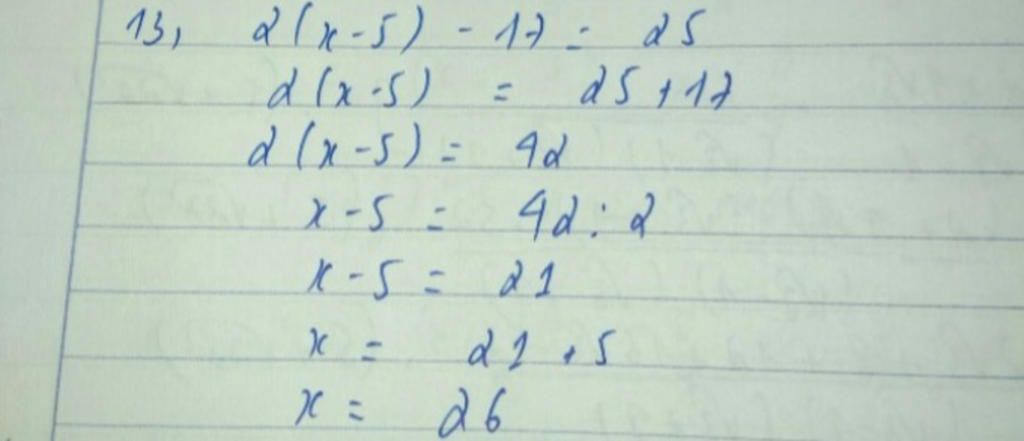 13, 2(x-5) - 17 = 25
2(x-5) = 25+17
2(x-5) = 42
x-5 = 42:2
x-5 = 21
x = 21+5
x = 26